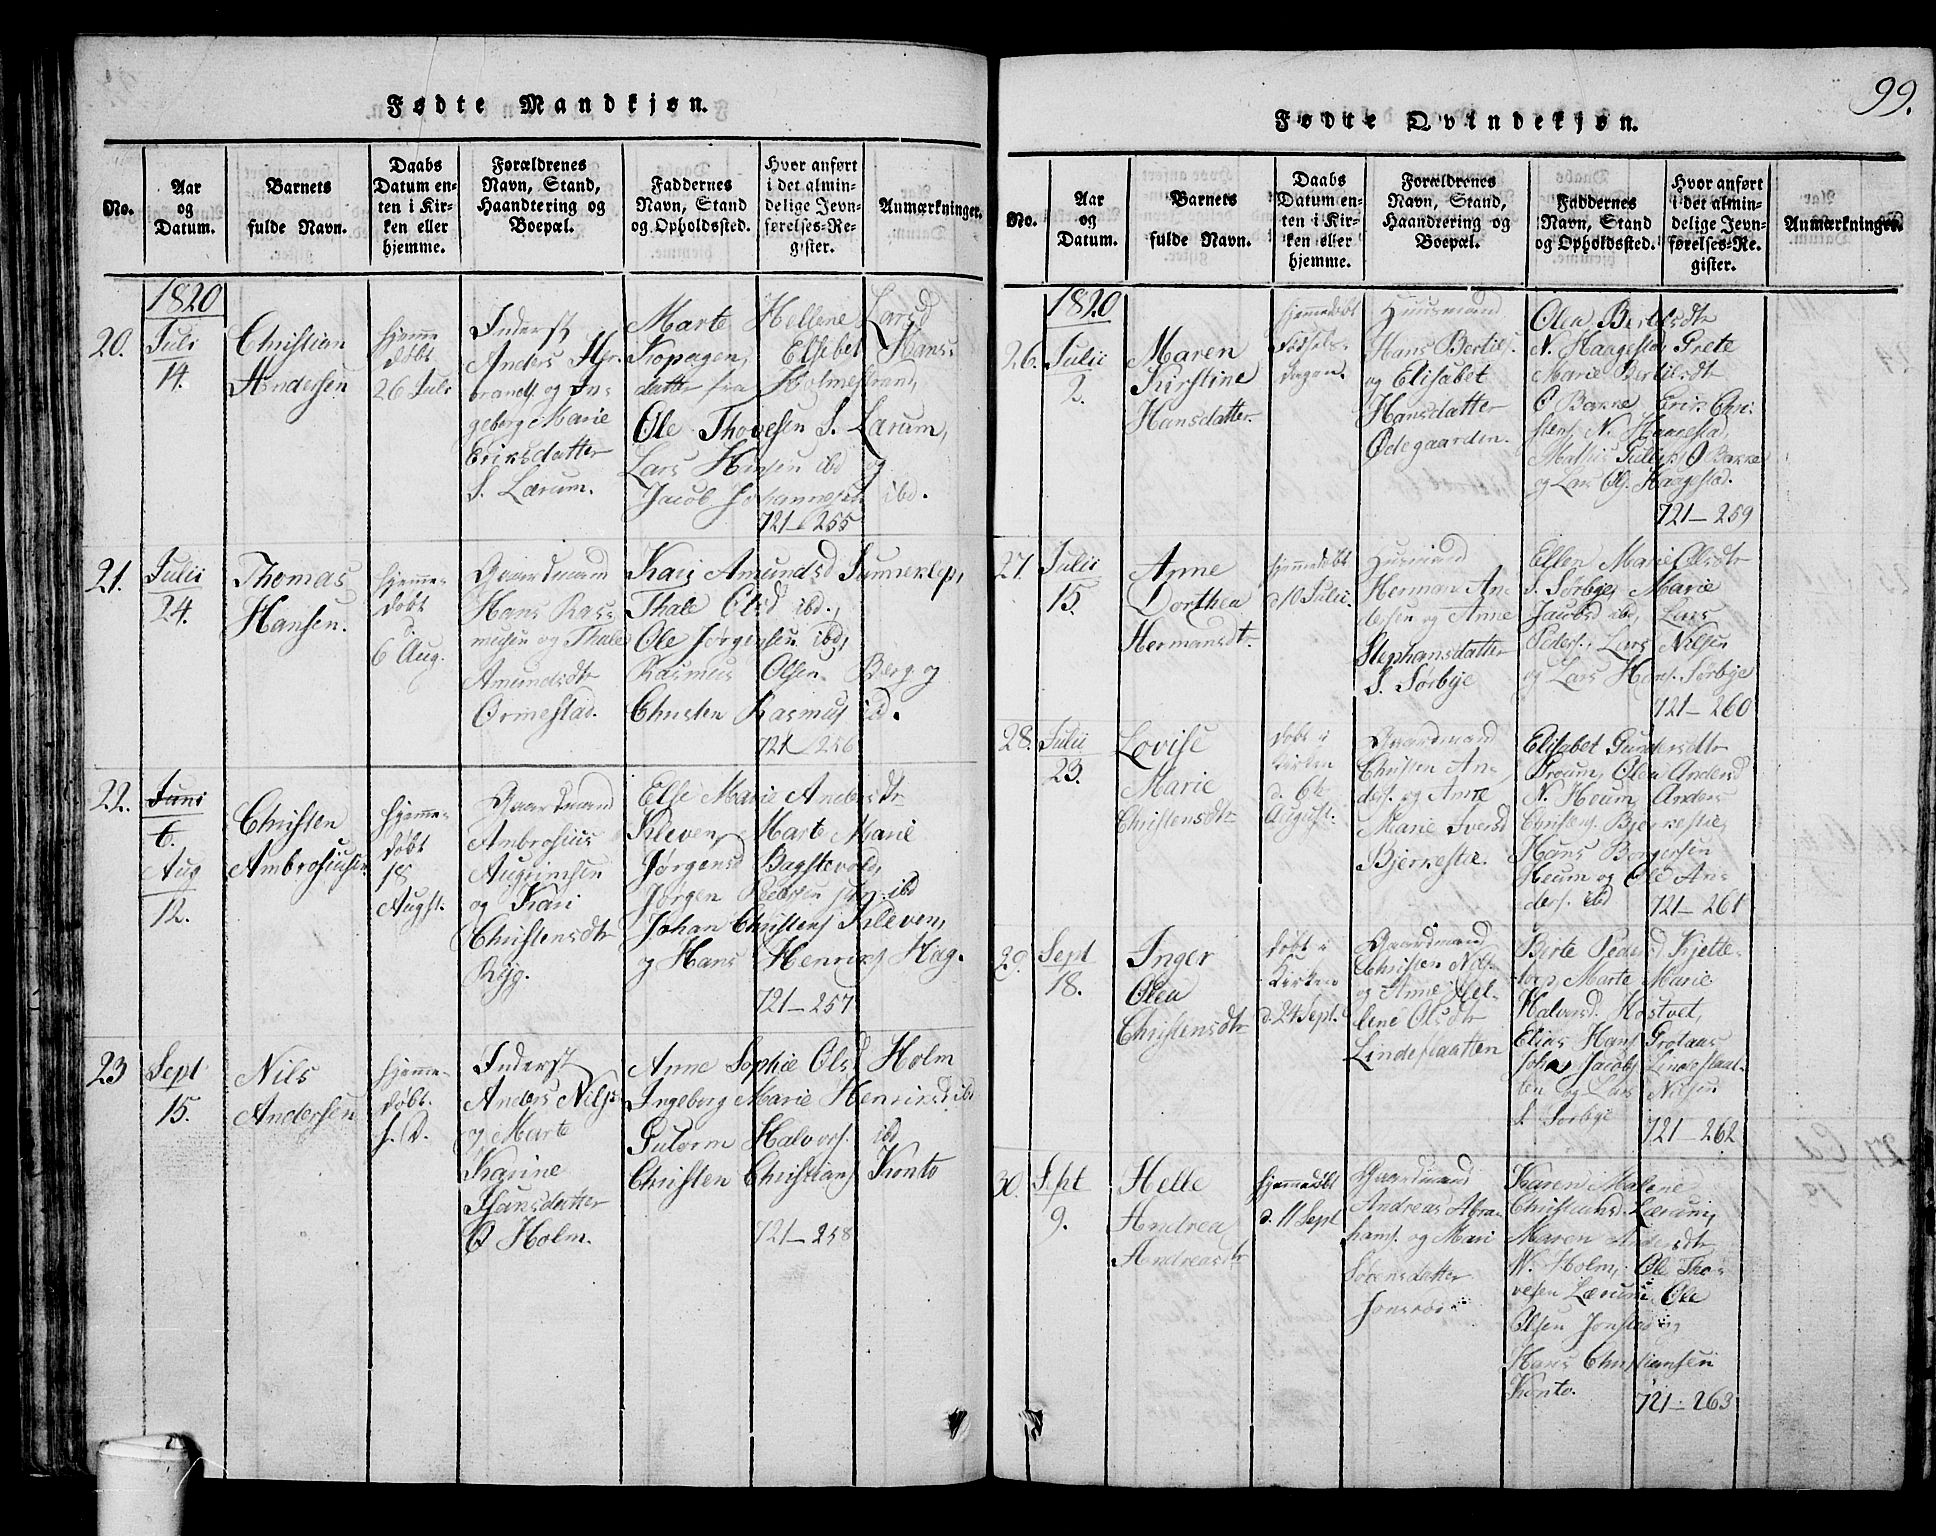 99.
Fødte Mandkjøn.
No.
Aar
og
Datum.
Barnets
fulde Navn.
Daabs
Datum en-
ten i Kir-
ken eller
hjemme.
Forældrenes
Navn, Stand,
Haandtering og
Boepæl.
Faddernes
Navn, Stand
og Opholdssted.
Hvor anført
i det almin-
delige Jevn-
førelses-Re-
gister.
Anmærkninger.
1820
20.
Juli
14.
Christian
Andersen
hjemme
døbt
26 Juli
Inderst
Anders
brandt og In-
geborg Marie
Eriksdatter
S. Lærum.
Marte Hellene Larsd
Kopagen, Elsebet Hans
datter fra Holmestrand,
Ole Thovesen S. Lærum,
Lars Hansen ibd og
Jacob Johannesen ibd.
721-255
21.
Julii
24.
Thomas
Hansen.
hjemme-
døbt
d.
6 Aug.
Gaardmand
Hans Ras-
mesen og Thale
Amundsdtr
Ormestad.
Kari Amundsd Sunneklep,
Thale Olsd ibd.,
Ole Jørgensen ibd,
Rasmus Olsen Berg og
Christen Rasmus ibd.
721-256
22.
Juni
6.
Aug
12.
Christen
Ambrosiusen
hjemme-
døbt
18
Augst.
Gaardmand
Ambrosius
Augrimsen
og Kari
Christensdtr
Ryg.
Else Marie Andersdtr
Kleven, Marte Marie
Jørgensd Bagstevold,
Jørgen Pedersen ibd
Johan Christens Kleven,
og Hans Henriks Hag.
721-257
23
Sept
15.
Nils
Andersen
hjemme-
døbt.
f. D.
Inderst
Anders Nils
og Marte
Karine
Hansdatter
Ø Holm.
Anne Sophie Olsd Holm
Ingeborg Marie Henriksd ibd
Gutorm Halvors. ibd
Christen Christians Konto
721-258
Fødte Qvindekjøn.
No.
Aar
og
Datum.
Barnets
fulde Navn.
Daabs
Datum en-
ten i Kir-
ken eller
hjemme.
Forældrenes
Navn, Stand,
Haandtering og
Boepæl.
Faddernes
Navn, Stand
og Opholdssted.
Hvor anført
i det almin-
delige Jevn-
førelses-Re-
gister.
Anmærkninger.
1820
26.
Julii
2.
Maren
Kirstine
Hansdatter.
hjemmedøbt
Fødsels-
dagen.
Huusmand
Hans Bertels.
og Elisabet
Hansdatter
Ødegaarden.
Olea Bertilsdtr
N. Haagestad, Grete
Marie Bertilsdtr
Ø Bakke Erik Chri-
stens N. Haagestad,
Mathis Gulliks Ø Bakke
og Lars Ols. Haagestad.
721-259
27.
Julii
15.
Anne
Dorthea
Hermansdtr.
hjemmedøbt
d 10 Julii.
Husmand
Herman An-
dersen og Anne
Stephansdatter
S. Sørbye
Ellen Marie Olsdtr
S. Sørbye, Marie
Jacobsd ibd, Lars
Peders., Lars Nilsen
og Lars Hans. Sørbye
721-260
28.
Julii
23.
Lovise
Marie
Christensdtr
døbt i
Kirken
d. 6te
August.
Gaardmand
Christen An-
ders. og Anne
Marie Iversd
Bjerkestie.
Elisabet Gundersdtr
Froum, Olea Andersd
N. Heum, Anders
Christens. Bjerkestie,
Hans Borgersen
Heum og Ole An-
ders. ibd
721-261
29.
Sept
18.
Inger
Olea
Christensdtr
døbt i
Kirken
d. 24 Sept.
Gaardmand
Christen Nils.
og Anne Hel-
lene Olsdtr
Lindeslaatten
Birte Pedersd Kjelle-
torp Marte Marie
Halvorsd. Hostvet,
Elias Hans Grotaas
Johan Jacobs Lindeslaat-
ten og Lars Nilsen
S. Sørbye
721-262
30.
Sept
9.
Helle
Andrea
Andreasdtr
hjemmedøbt
d. 11 Sept
Gaardmand
Andreas Abra-
hams. og Mari
Sørensdatter
Jonsrød
Karen Malene
Christiansd. Lærum,
Maren Andersdtr
N. Holm, Ole Tho-
vesen Lærum, Ole
Olsen Jonsrød og
Hans Christiansen
Konto.
721-263